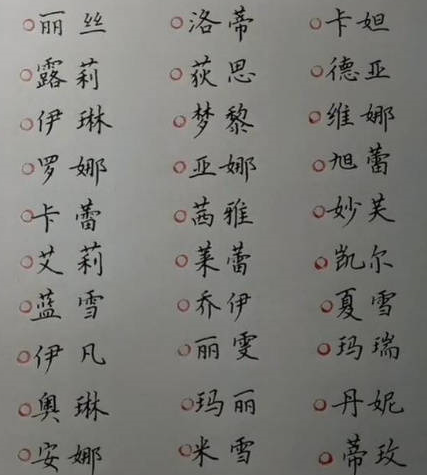 丽丝 洛蒂 卡妲
露莉 荻思 德亚
伊琳 梦黎 维娜
罗娜 亚娜 旭蕾
卡蕾 茜雅 妙芙
艾莉 莱蕾 凯尔
蓝雪 乔伊 夏雪
伊凡 丽雯 玛瑞
奥琳 玛丽 丹妮
安娜 米雪 蒂玫